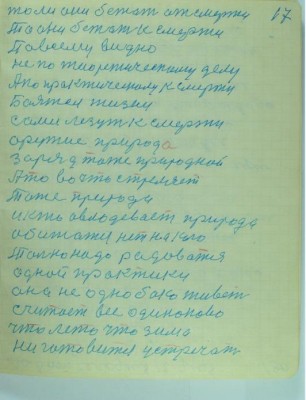 17
толи они бежат от смерти
То они бежат к смерти
По всему видно
не по тиоритическому делу
А по практическому к смерти
Боятся жизни
сами лезут к смерти
оружие природа
заряд тоже природной
А то во что стреляет
Тоже природа
обижатся нет на кого
Только надо радоватся
одной практики
она не однобоко живет
считает все одиноково
что лето что зима